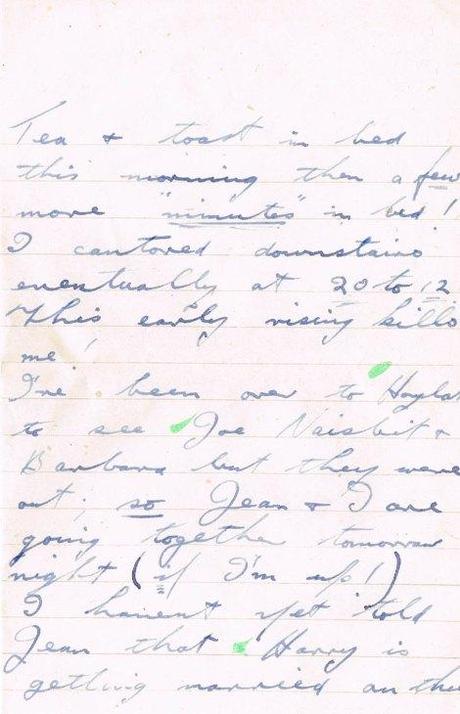 Tea + toast in bed
this morning then a few
more "minutes" in bed!
I cantored downstairs
eventually at 20 to 12
This early rising kills
me!
I've been over to Hoylak
to see Joe Naisbit +
Barbara but they were
out; so Jean + I are
going together tomorrow
night (if I'm up!)
I havent yet told
Jean that Harry is
getting married on the